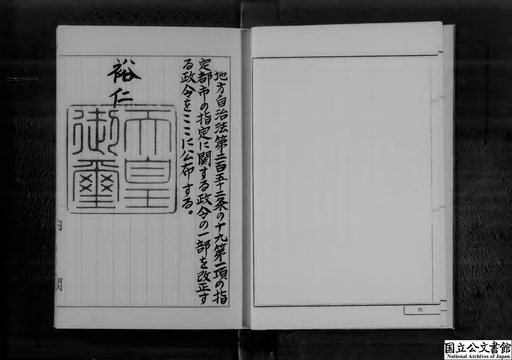 地方自治法第二百五十二条の十九第一項の指
定都市の指定に関する政令の一部を改正す
る政令をここに公布する。
裕仁
天皇
御璽
内
国立公文書館
National Archives of Japan